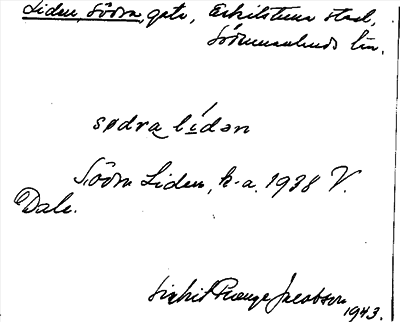 Liden, Södra, gata, Eskilstuna stad,
Södermanlands län.
sødra lídən
Södra Liden, k.a. 1938 V.
Dale.
Sigrid Prange Jacobson
1943.